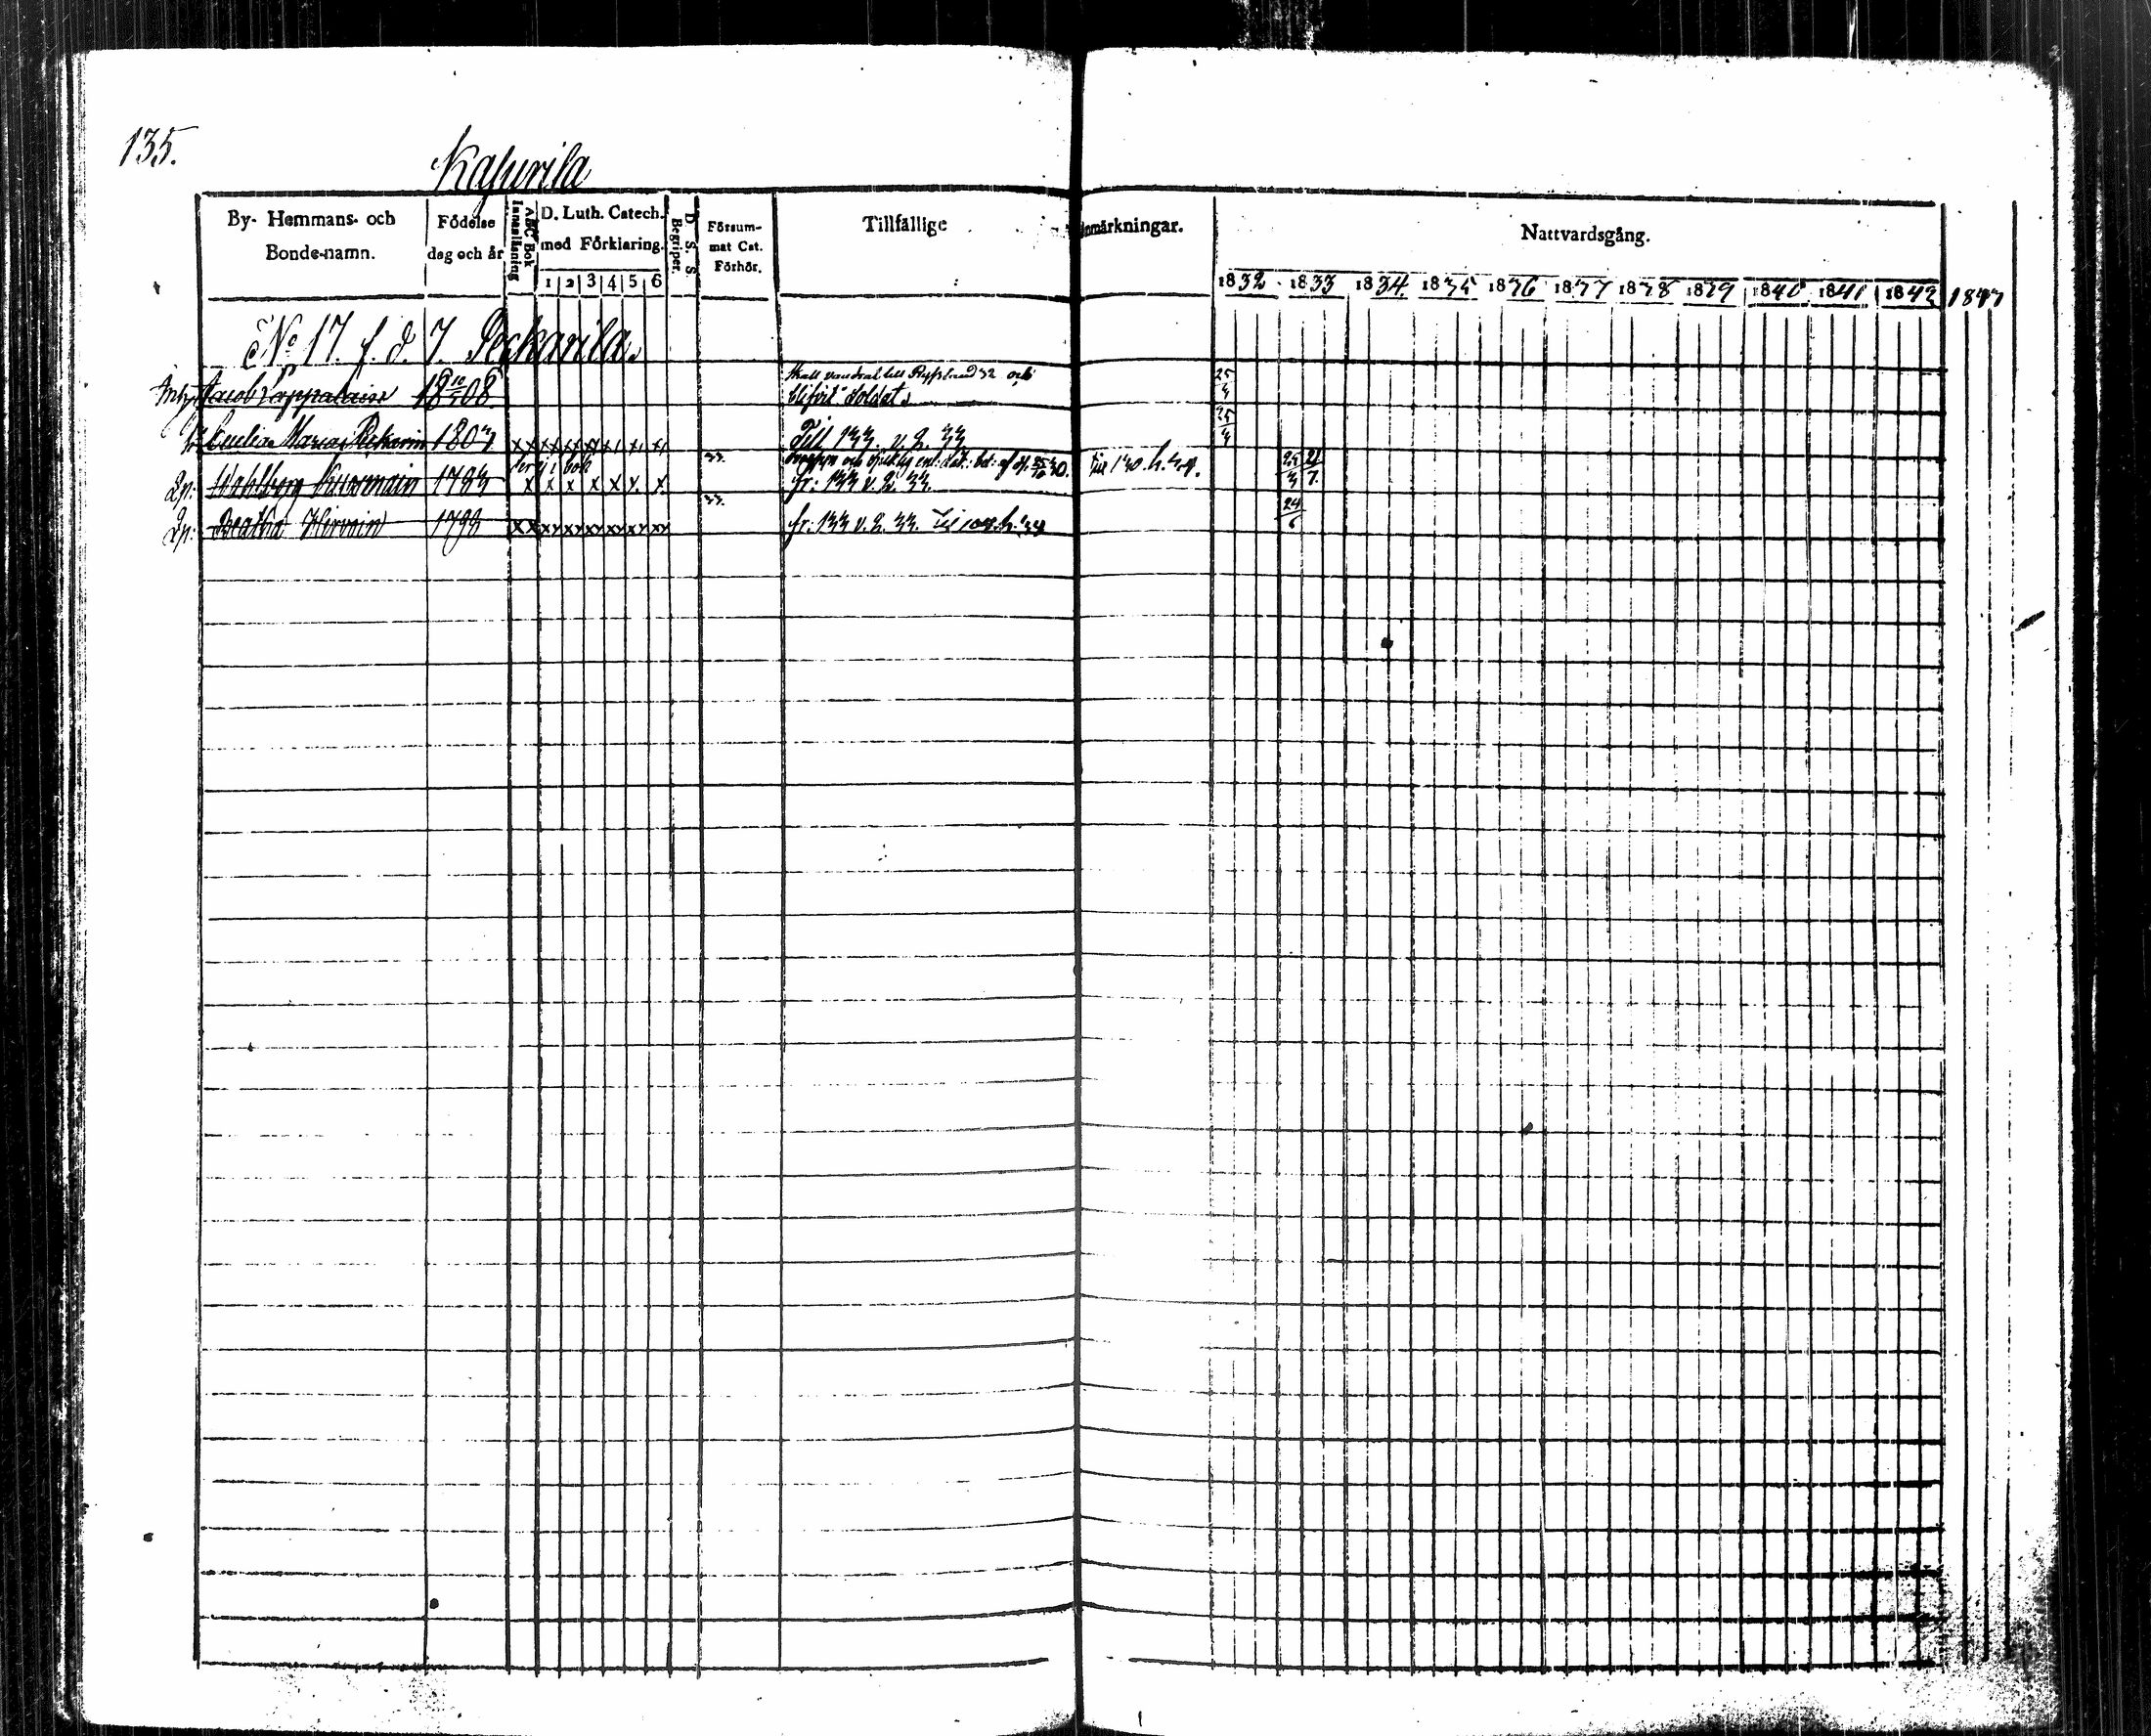 135.
Kapurila
By- Hemmans- och Bonde-namn.
Födelse dag och år
ABC Bok Innanläsning
D. Luth. Catech. med Förklaring.
1 2 3 4 5 6
D. S. S. Begriper.
Försum-mat Cat. Förhör.
Tillfällige Anmärkningar.
Nattvardsgång.
1832 1833 1834. 1835 1836 1837 1838 1839 1840 1841 1842 1843
No 17. f. d. 7. Peckarila.
Jacob Lappalaine 18 10/5 08. Skall vandrat till Ryssland 32 och blifvit Soldat. 25/3
Maria 1803 x x x x x x x x Till 133. v. 2. 33 25/3
Wahlberg 1783 x x x x x x x 33. fr: 133 v. 2. 33. 25/3 21/7
Beatha Hirvoin 1788 xx xx xx xx xx xx xx 33. fr: 133 v. 2. 33. 24/6